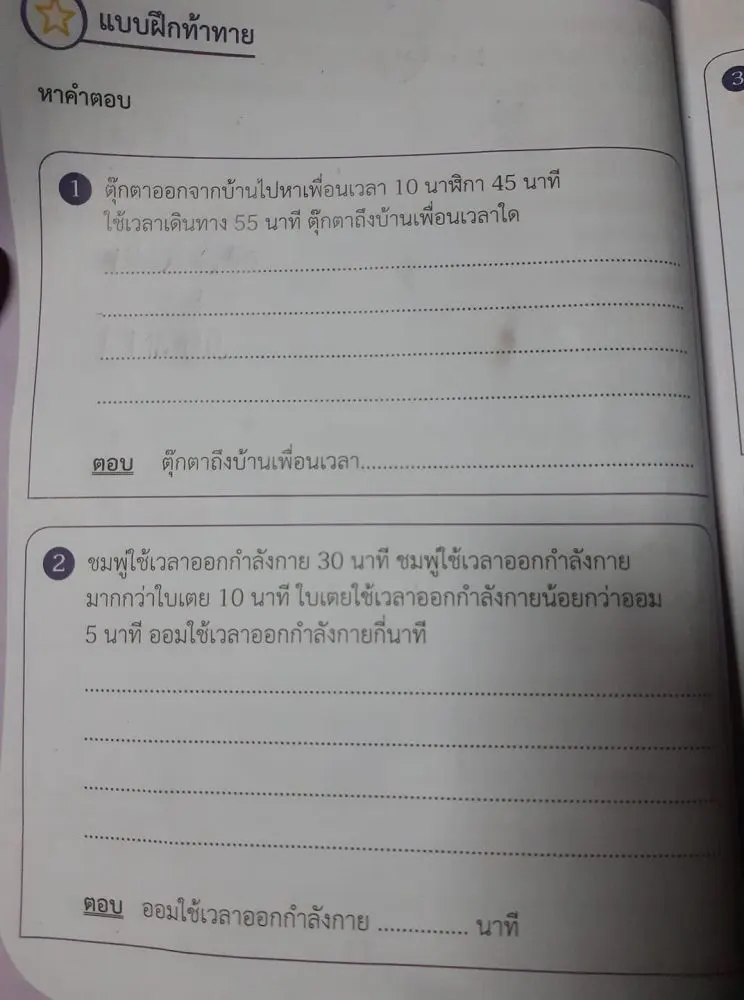 แบบฝึกท้าทาย
หาคำตอบ
3
1 ตุ๊กตาออกจากบ้านไปหาเพื่อนเวลา 10 นาฬิกา 45 นาที
ใช้เวลาเดินทาง 55 นาที ตุ๊กตาถึงบ้านเพื่อนเวลาใด
ตอบ ตุ๊กตาถึงบ้านเพื่อนเวลา
2 ชมพู่ใช้เวลาออกกำลังกาย 30 นาที ชมพู่ใช้เวลาออกกำลังกาย
มากกว่าใบเตย 10 นาที ใบเตยใช้เวลาออกกำลังกายน้อยกว่าออม
5 นาที ออมใช้เวลาออกกำลังกายกี่นาที
ตอบ ออมใช้เวลาออกกำลังกาย ............... นาที